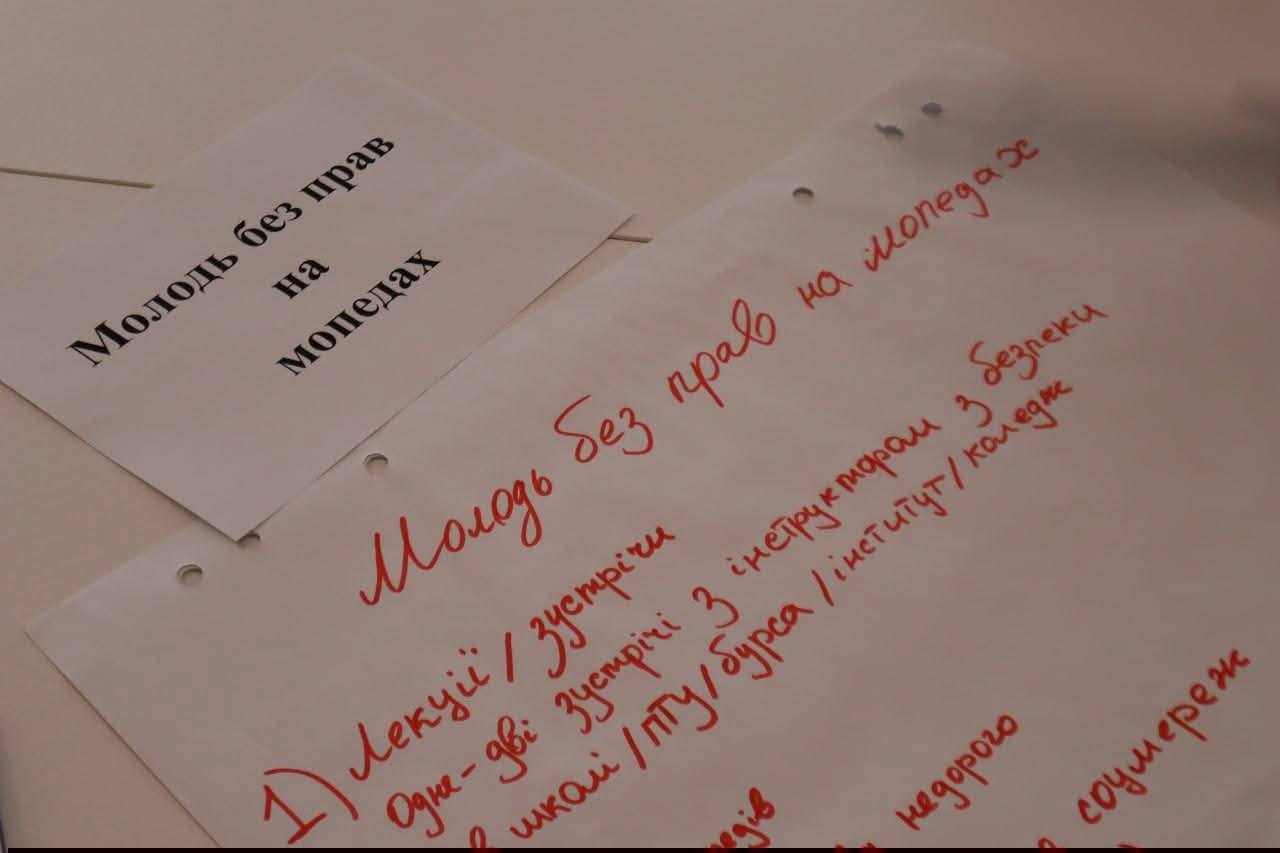 Молодь без прав
на
мопедах
Молодь без прав на мопедах
1) Лекції / зустрічи
Одна-дві зустрічі з інструктором з безпеки
в школі / ПТУ / бурса / інститут / коледж
недорого
соцмереж